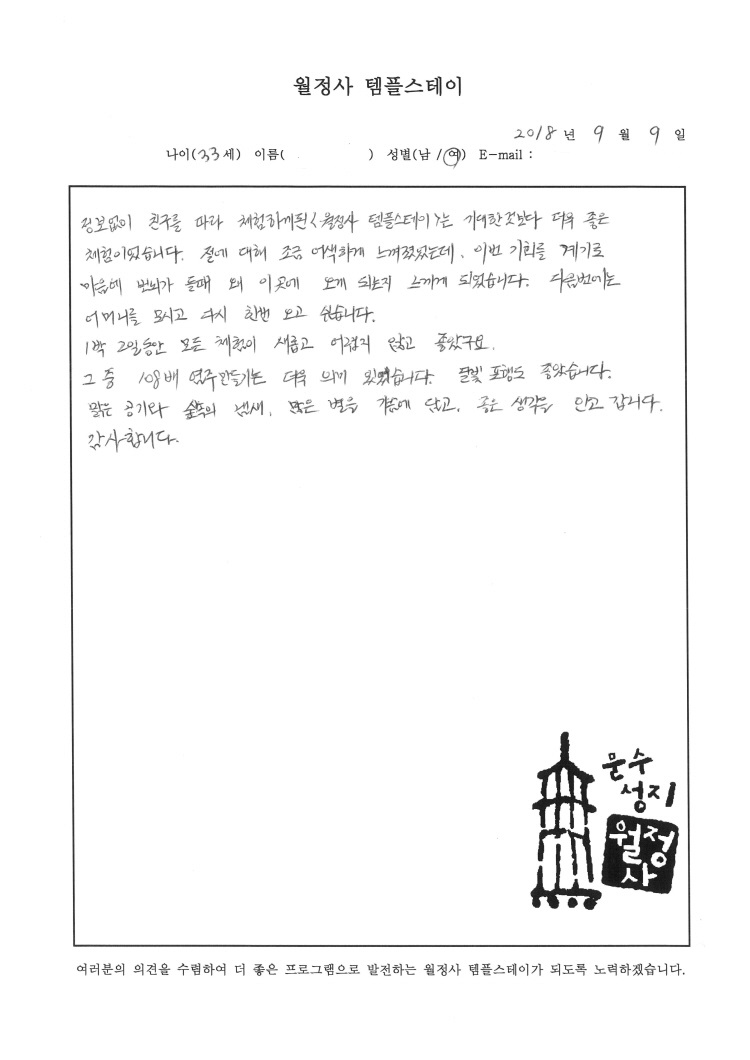 월정사 템플스테이
2018 년 9 월 9 일
나이(33세) 이름( ) 성별(남 / 여) E-mail :
정보없이 친구를 따라 체험하게된 <월정사 템플스테이>는 기대한것보다 더욱 좋은
체험이었습니다. 절에 대해 조금 어색하게 느껴졌었는데, 이번 기회를 계기로
마음에 번뇌가 들때 왜 이곳에 오게 되는지 느끼게 되었습니다. 다음번에는
어머니를 모시고 다시 한번 오고 싶습니다.
1박 2일동안 모든 체험이 새롭고 어렵지 않고 좋았구요.
그 중 108배 염주만들기는 더욱 의미 있었습니다. 달빛 포행도 좋았습니다.
맑은 공기와 숲속의 냄새, 많은 별을 가슴에 담고, 좋은 생각을 안고 갑니다.
감사합니다.
문수
성지
월정
사
여러분의 의견을 수렴하여 더 좋은 프로그램으로 발전하는 월정사 템플스테이가 되도록 노력하겠습니다.